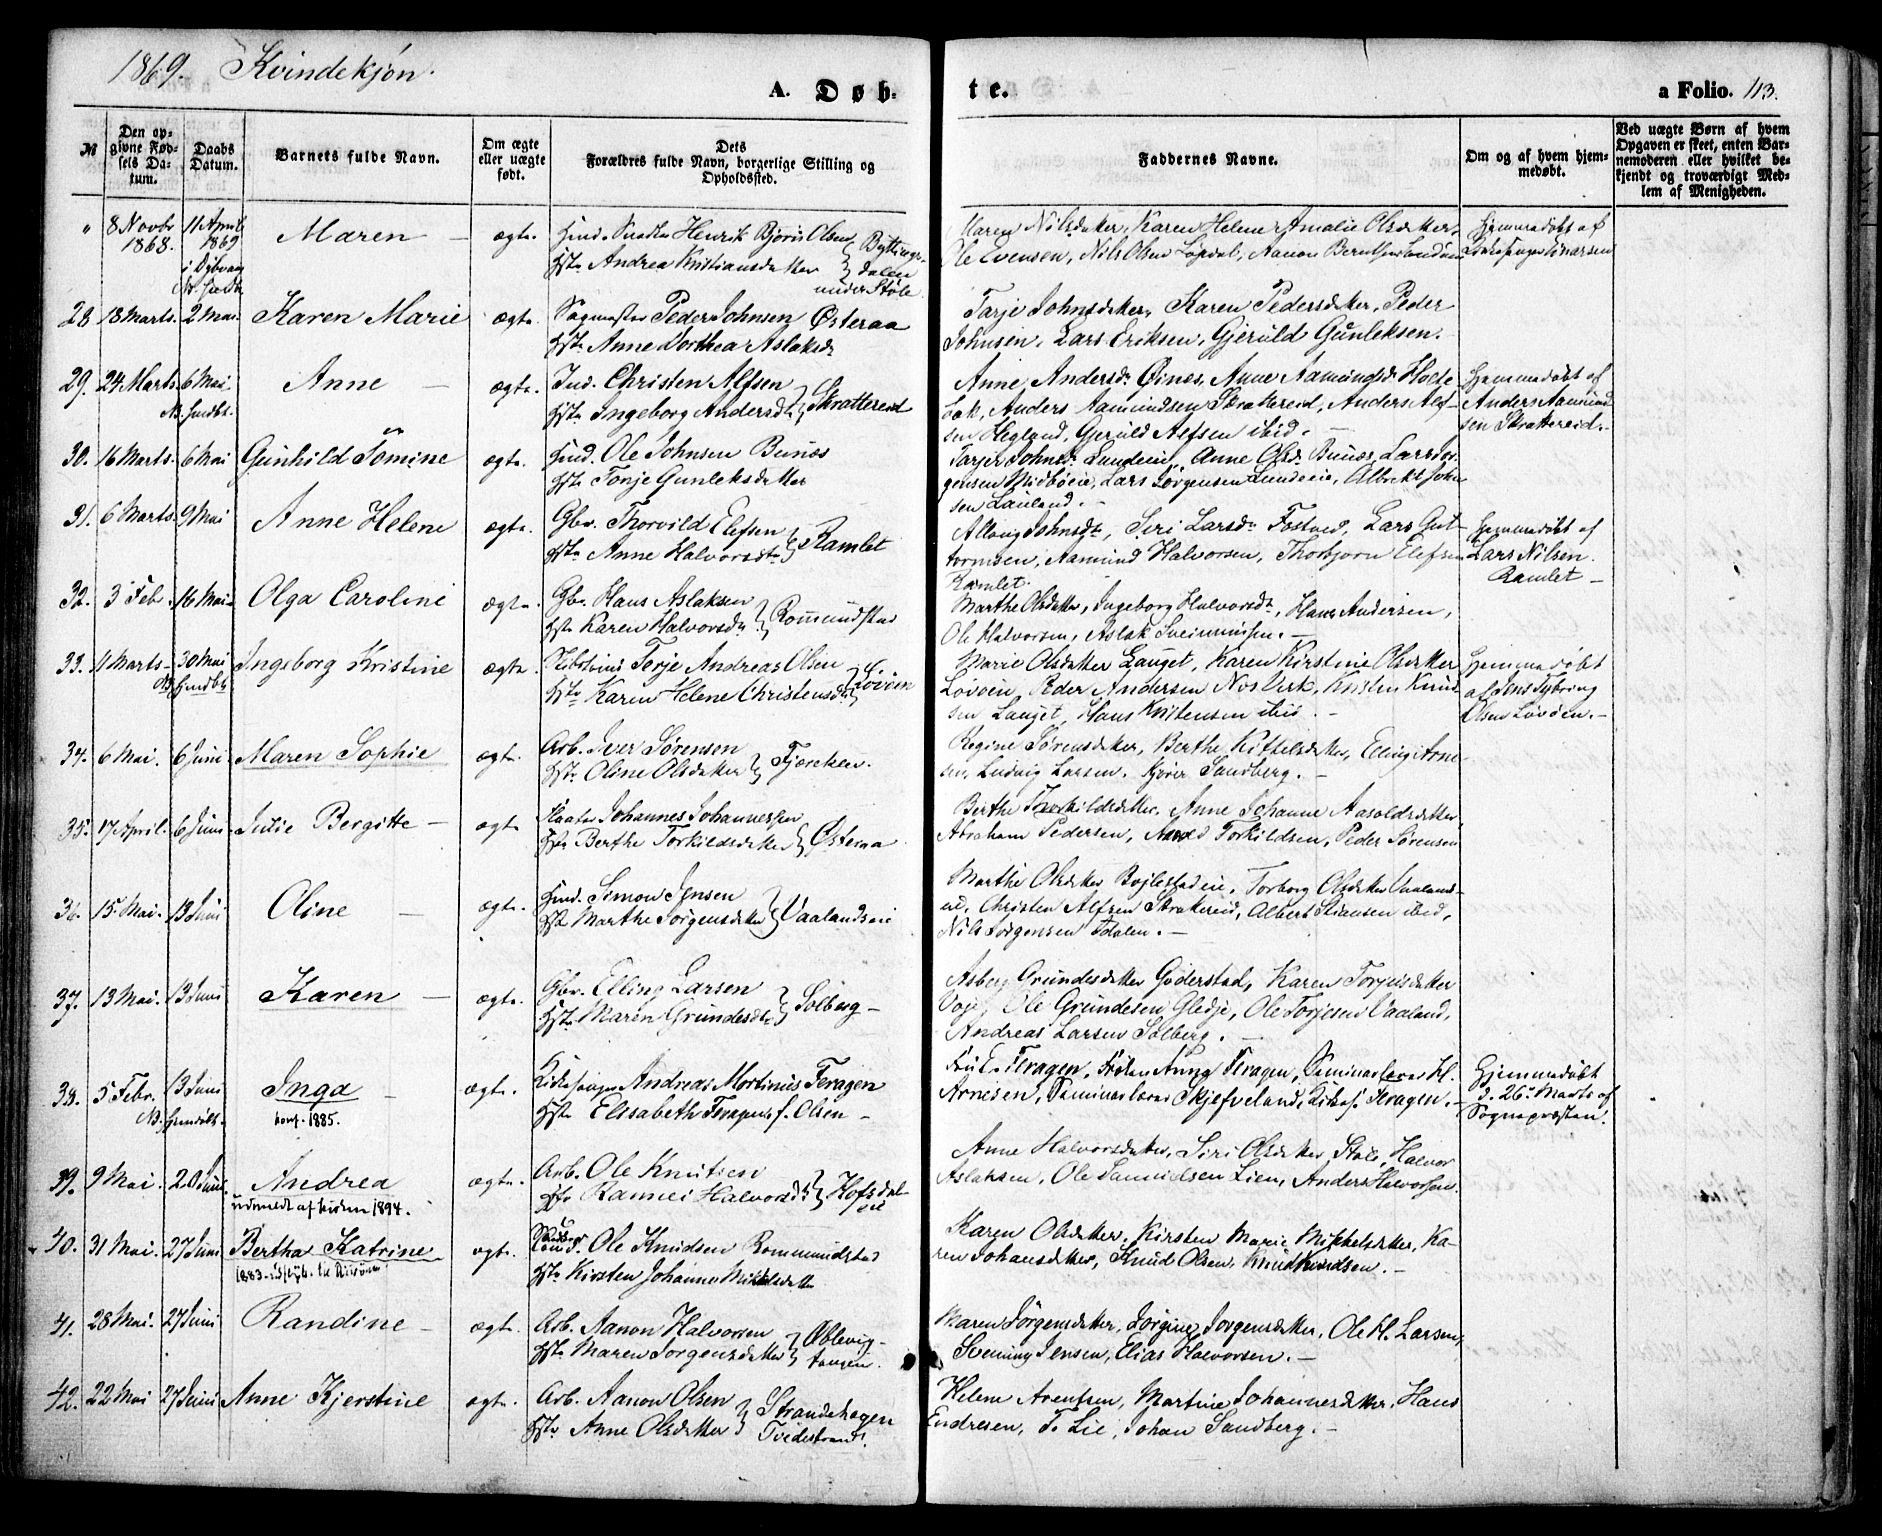 1869. Kvindekjøn.
A. Døb-
te.
a Folio. 113.
№
Den op-
givne Fød-
sels Da-
tum.
Daabs
Datum.
Barnets fulde Navn.
Om ægte
eller uægte
født.
Dets
Forældres fulde Navn, borgerlige Stilling og
Opholdssted.
Faddernes Navne.
Om og af hvem hjem-
medøbt.
Ved uægte Børn af hvem
Opgaven er skeet, enten Bar-
nemoderen eller hvilket be-
kjendt og troværdigt Med-
lem af Menigheden.
" 8 Novbr 11 April Maren — ægte. Henrik Bjørn Olsen
1868. 1869 Hst. Andrea Kristiansdatter
i Dybvaag dalen
under Støle
Maren Nilsdatter, Karen Helene Amalie Olsdatter,
Ole Evensen, Nils Olsen Løvdal, Aanon Berntsen
Hjemmedøbt af
28 18 Marts. 2 Mai. Karen Marie ægte. Sagmester Peder Johnsen Østeraa
Hst. Anne Dorthea Aslaksd.
Tarje Johnsdatter, Karen Pedersdatter, Peder
Johnsen, Lars Eriksen, Gjeruld Gunleksen.
29. 24 Marts. 6 Mai Anne — ægte. Ind. Christen Alfsen
NB. Hmdbt. Hst. Ingeborg Andersdt. Skrattereid
Anne Andersd. Øinæs, Anne Aamundsd. Holte
Anders Aamundsen Skrattereid, Anders Alf-
sen Hegland, Geruld Alfsen ibid. —
Hjemmedøbt af
Anders Aamund
sen Skrattereid.
30. 16 Marts. 6 Mai Gunhild Tomine ægte. Ind. Ole Johnsen Bunæs
Hst. Tonje Gunleksdatter
Johnsd. Lundeeie, Anne Olsd. Bunæs, Lars Jør
gensen Midbøeie, Lars Jørgensen Lundeeie, Albrekt John
sen Lauland. —
31. 6 Marts. 9 Mai Anne Helene ægte. Gbr. Thorvild Elefsen
Hst. Anne Halvorsdt. Ramlet
Aslaug Johnsdt., Siri Larsd. Fosted, Lars Gut-
tormsen, Aamund Halvorsen, Thorbjørn Elefsen
Ramlet.
Hjemmedøbt af
Lars Nilsen
Ramlet —
32. 3 Febr. 16 Mai. Olga Caroline ægte. Gbr. Hans Aslaksen
Hst. Karen Halvorsd. Rommundstad
Marthe Olsdatter, Ingeborg Halvorsdt., Hans Andersen,
Ole Halvorsen, Aslak Sveinunsen. —
33. 11 Marts. 30 Mai Ingeborg Kristine ægte. Terje Andreas Olsen
NB. Hmdbt. Hst. Karen Helene Christensdt. Løvøen
Marie Olsdatter Lauget, Karen Kirstine Olsdatter
Løvøen, Peder Andersen Næs Verk, Kristen Knud-
sen Lauget, Hans Kristensen ibid. —
Hjemmedøbt
af Jens Tybring
Olsen Løvøen. —
34. 6 Mai. 6 Juni Maren Sophie ægte. Arb. Iver Sørensen
Hst. Oline Olsdatter Fjæreheia.
Regine Sørensdatter, Berthe Kittelsdatter, Elling Arne
sen, Ludvig Larsen, Sandberg. —
35. 17 April. 6 Juni Julie Bergitte — ægte Johannes Johannessen
Hst. Berthe Torkildsdatter Østeraa
Berthe Torkildsdatter, Anne Johanne Aasoldsdatter,
Abraham Pedersen, Torkildsen, Peder Sørensen
36. 15 Mai. 13 Juni Oline — ægte. Ind. Simon Jensen
Hst. Marthe Jørgensdatter Vaalandseie
Marthe Olsdatter Bøjlestadeie, Torborg Olsdatter Vaalands-
eie, Christen Alfsen Skrattereid, Albert Stiansen ibid,
Nils Jørgensen Ødalen. —
37. 13 Mai. 13 Juni Karen — ægte. Gbr. Elling Larsen
Hst. Maren Grundesdt. Solberg —
Asberg Grundesdatter Goderstad, Karen Torjusdatter
Voje, Ole Grundesen Gledje, Ole Torjesen Vaaland,
Andreas Larsen Solberg. —
38. 5 Febr. 13 Juni Inga — ægte. Kirkesanger Andreas Mortinus Feragen
NB. Hmdøbt. konf. 1885. Hst. Elisabeth Feragen f. Olsen —
Fru E. Feragen, Frøken Anna Feragen, Seminarlærer H.
Arnesen, Seminarlærer Skjefveland, Kirkes. Feragen. —
Hjemmedøbt
d. 26. Marts af
Sognepræsten.
39. 9 Mai 20 Juni. Andrea ægte. Arb. Ole Knutsen
udmeldt af kirken 1894. Hst. Rannei Halvorsdt. Hofsdal-
eie
Anne Halvorsdatter, Siri Olsdatter Støle, Halvor
Aslaksen, Ole Samuelsen Lien, Anders Halvorsen.
40. 31 Mai. 27 Juni Bertha Katrine ægte. Ole Knudsen Rommundstad
1883. Hst. Kirsten Johanne
Karen Olsdatter, Kirsten Marie Mikkelsdatter, Ka-
ren Johansdatter, Knud Olsen, Knut Knudsen. —
41. 28 Mai. 27 Juni Randine — ægte. Arb. Aanon Halvorsen
Hst. Maren Jørgensdatter Oblevig-
tangen.
Maren Jørgensdatter, Jørgine Jørgensdatter, Ole H. Larsen,
Svenning Jensen, Elias Halvorsen. —
42. 22 Mai 27 Juni Anne Kjerstine ægte. Arb. Aanon Olsen
Hst. Anne Olsdatter Strandehagen
Tvedestrand.
Helene Arentsen, Martine Johannesdatter, Hans
Endresen, T. Lie, Johan Sandberg. —